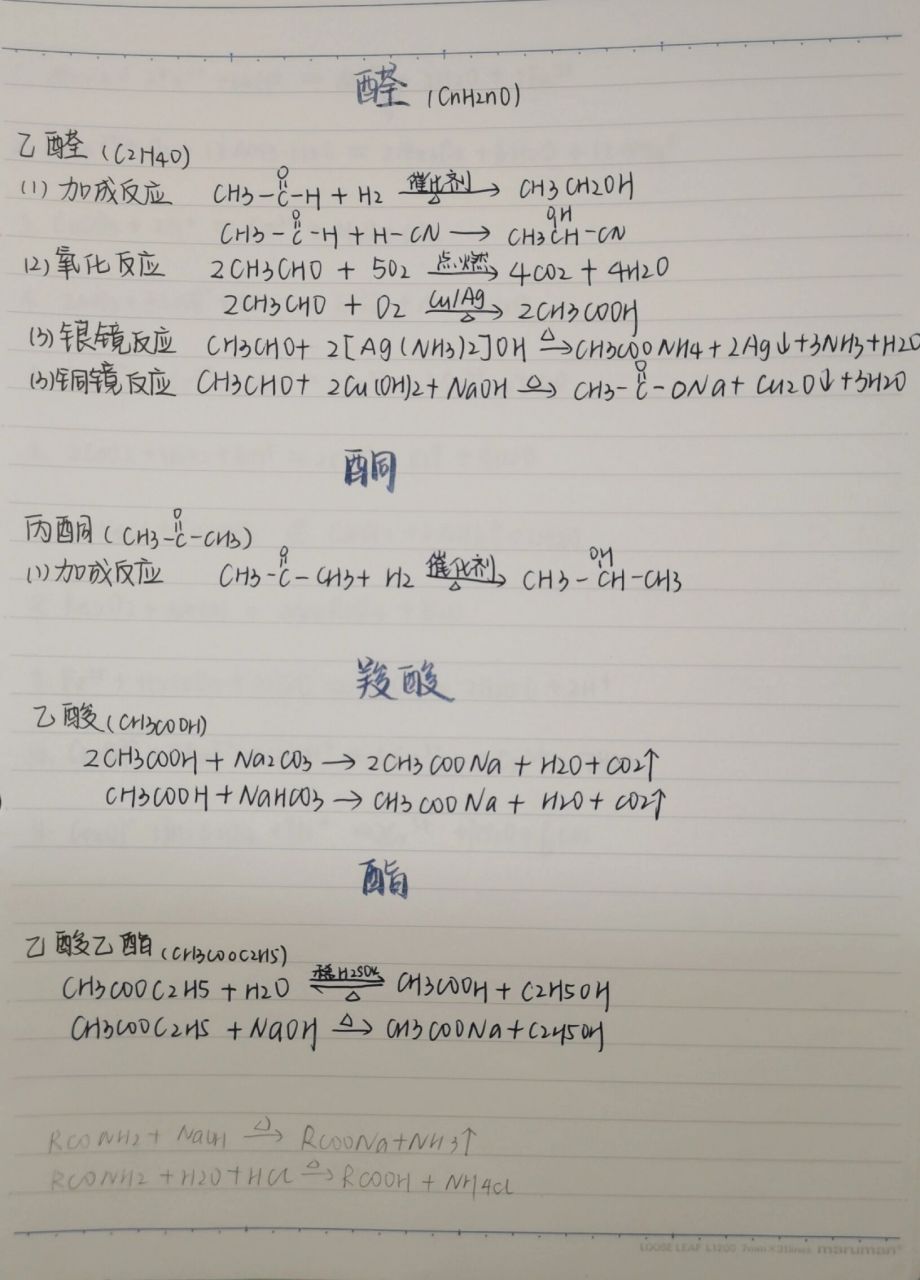 醛 (CnH2nO)
乙醛 (C2H4O)
(1) 加成反应 CH3-C(=O)-H + H2 催化剂/△→ CH3CH2OH
CH3-C(=O)-H + H-CN → CH3CH(OH)-CN
(2) 氧化反应 2CH3CHO + 5O2 点燃→ 4CO2 + 4H2O
2CH3CHO + O2 Cu/Ag/△→ 2CH3COOH
(3) 银镜反应 CH3CHO + 2[Ag(NH3)2]OH △→ CH3COONH4 + 2Ag↓ + 3NH3 + H2O
(3) 铜镜反应 CH3CHO + 2Cu(OH)2 + NaOH △→ CH3-C(=O)-ONa + Cu2O↓ + 3H2O
酮
丙酮 (CH3-C(=O)-CH3)
(1) 加成反应 CH3-C(=O)-CH3 + H2 催化剂/△→ CH3-CH(OH)-CH3
羧酸
乙酸 (CH3COOH)
2CH3COOH + Na2CO3 → 2CH3COONa + H2O + CO2↑
CH3COOH + NaHCO3 → CH3COONa + H2O + CO2↑
酯
乙酸乙酯 (CH3COOC2H5)
CH3COOC2H5 + H2O 稀H2SO4/△⇌ CH3COOH + C2H5OH
CH3COOC2H5 + NaOH △→ CH3COONa + C2H5OH
RCONH2 + NaOH △→ RCOONa + NH3↑
RCONH2 + H2O + HCl △→ RCOOH + NH4Cl
LOOSE LEAF L1200 7mm×31lines maruman